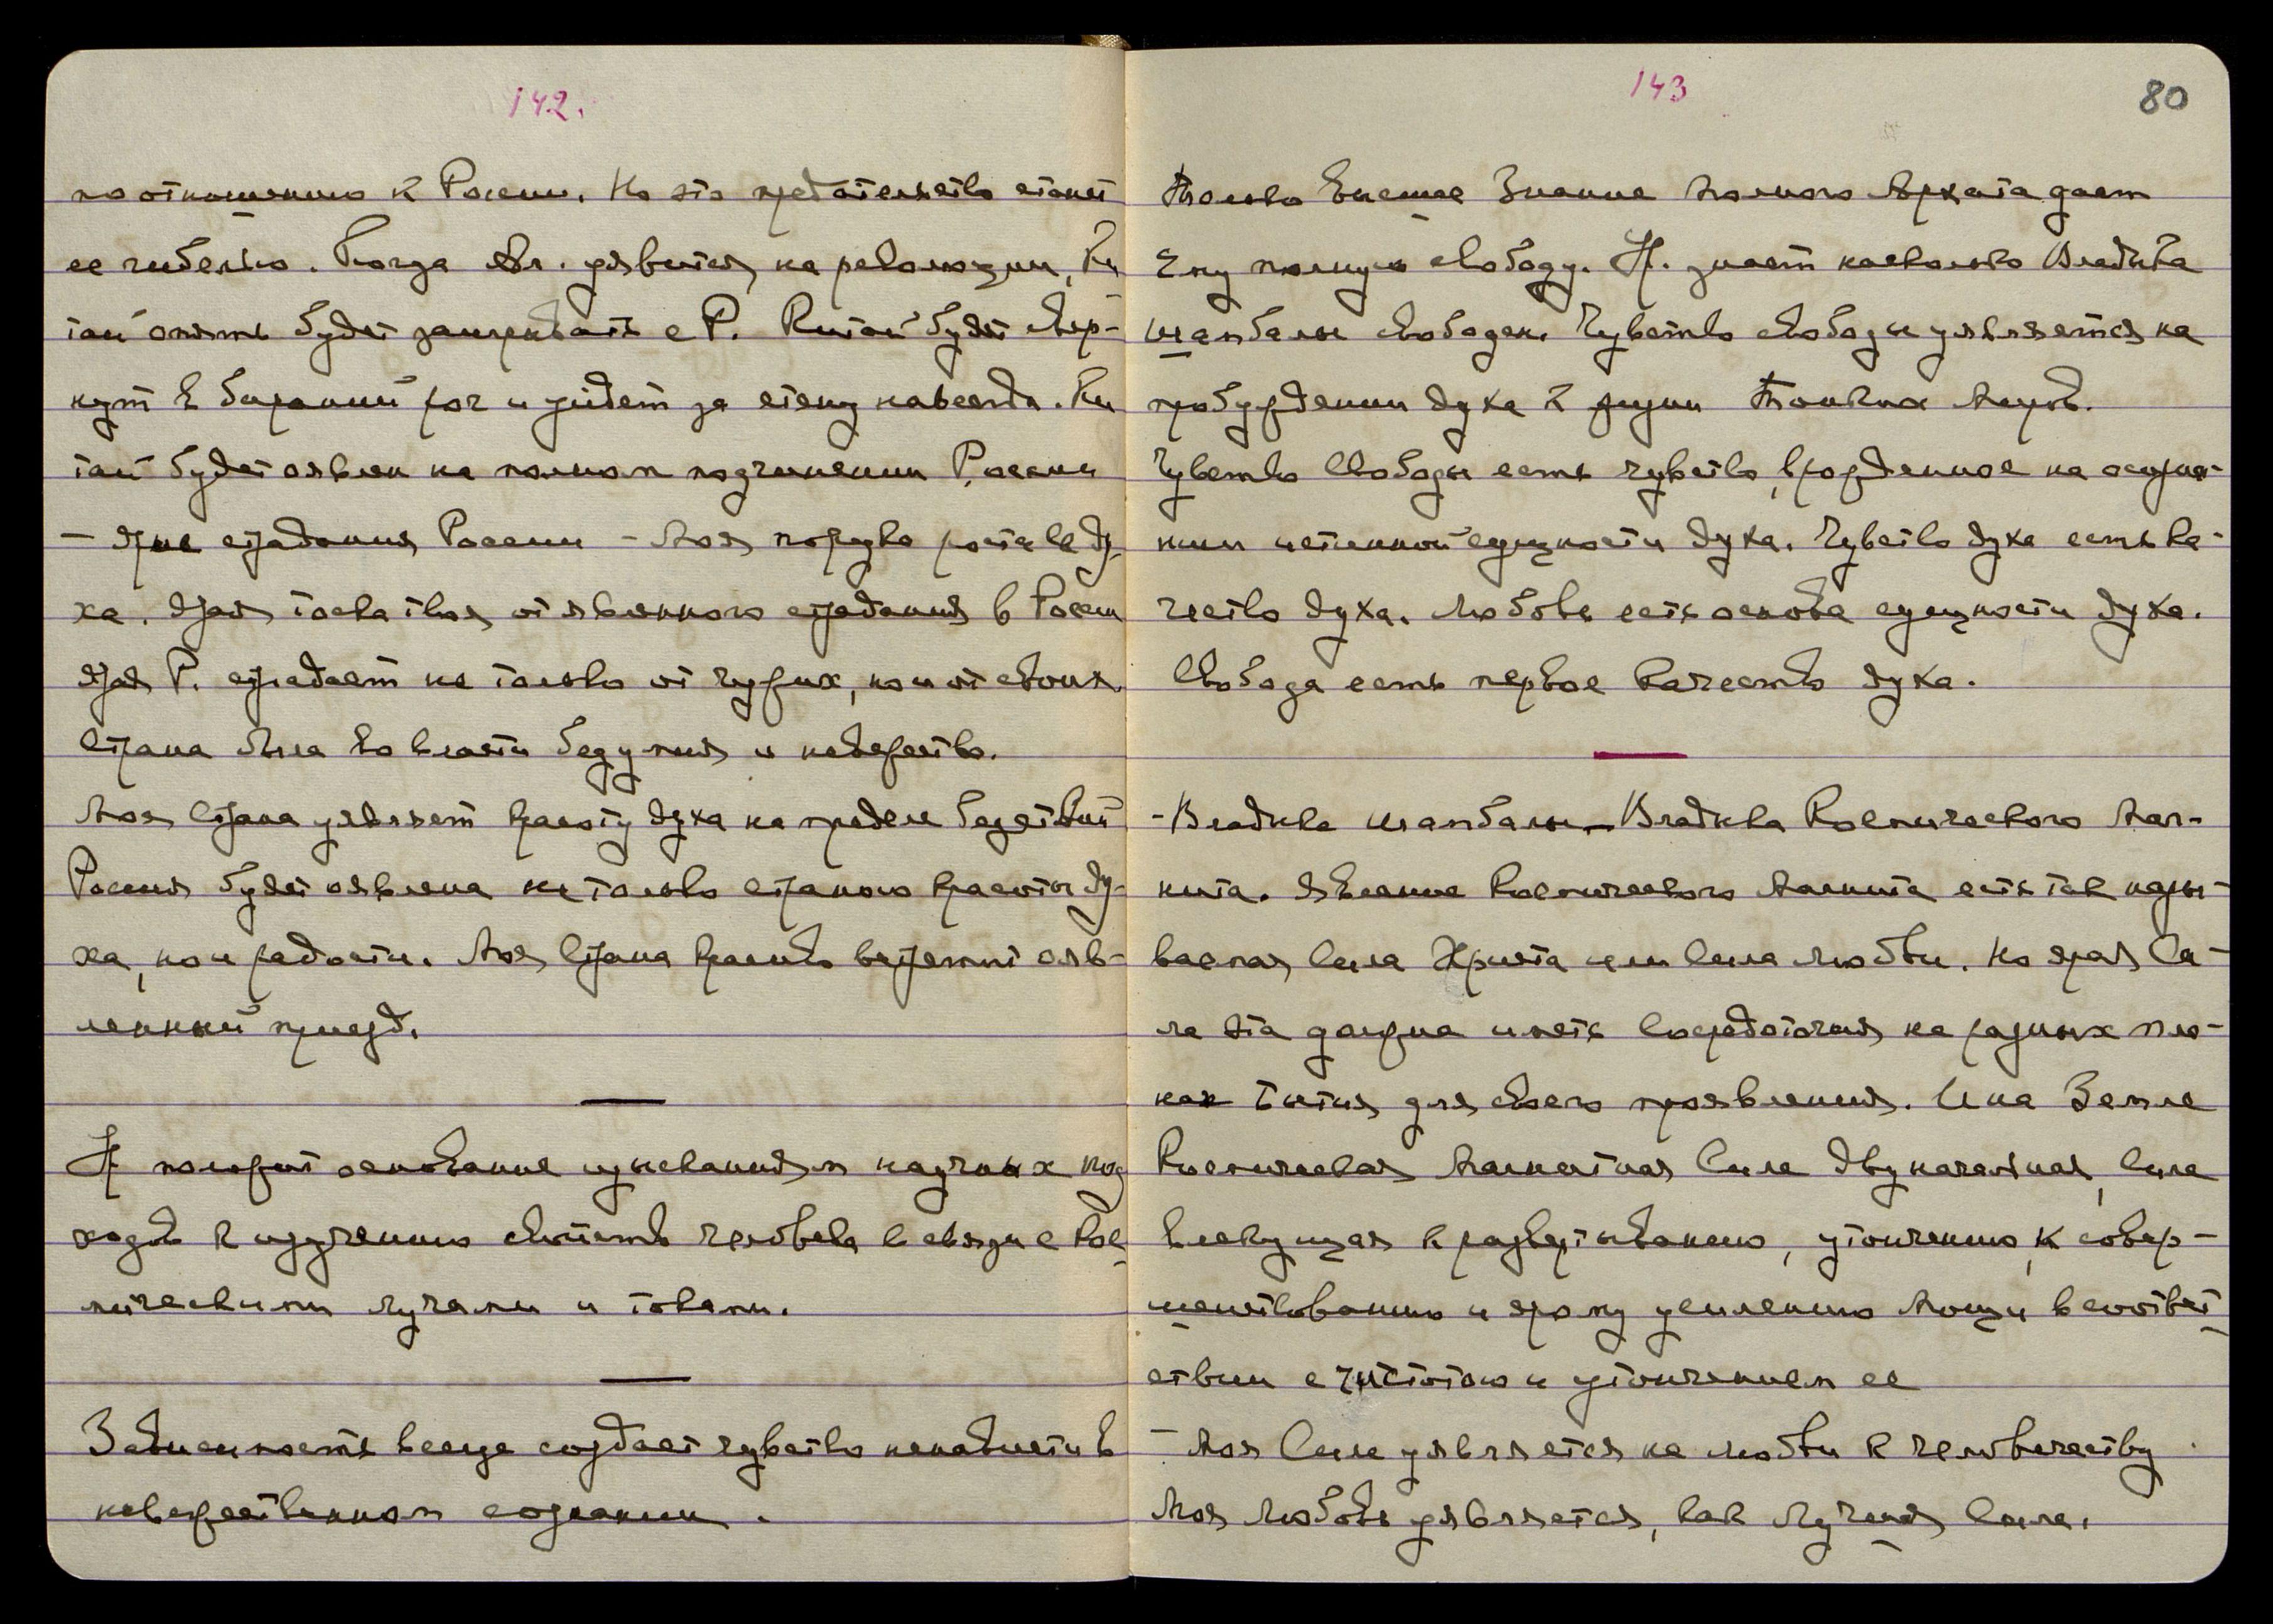 142.
по отношению к России. Но это предательство станет
ее гибелью. Когда Ял. уявится на революции, Ки
тай опять будет заигрывать с Р. Китай будет свер-
нут в бараний рог и уйдет за стену навсегда. Ки
тай будет оявлен на полном подчинении России
– Ярые страдания России – Моя порука роста ее ду-
ха. Ярая тоска твоя от явленного страдания в России
Ярая Р. страдает не только от чужих, но и от своих.
Страна Моя во власти безумия и невежества.
Моя Страна уявляет красоту духа на пределе бедствий
Россия будет оявлена не только страною красоты ду-
ха, но и радости. Моя Страна красиво встретит ояв-
ленный приезд.
Н положит основание изысканиям научных под
ходов к изучению свойств человека в связи с Кос
мическими лучами и токами.
Зависимость всегда создает чувство ненависти в
невежественном сознании.
143
80
Только Высшее Знание Полного Архата дает
Ему полную свободу. Н. знает насколько Владыка
Шамбалы свободен. Чувство свободы уявляется на
пробуждении духа к жизни Тонких Миров.
Чувство Свободы есть чувство, врожденное на
нии истинной сущности духа. Чувство духа есть ка-
чество духа. Любовь есть основа сущности духа.
Свобода есть первое качество духа.
- Владыка Шамбалы – Владыка Космического Маг-
нита. Явление Космического Магнита есть так назы-
ваемая Сила Христа или Сила Любви. Но ярая Си-
ла эта должна иметь Сосредоточия на разных пла-
нах Бытия для своего проявления. И на Земле
Космическая Магнитная Сила двуначальная, Сила
влекущая к развертыванию, утончению, к совер-
шенствованию и ярому усилению Мощи в соответ
ствии с чистотою и утончением ее
– Моя Сила уявляется на любви к человечеству
Моя Любовь уявляется, как Лучшая Сила.